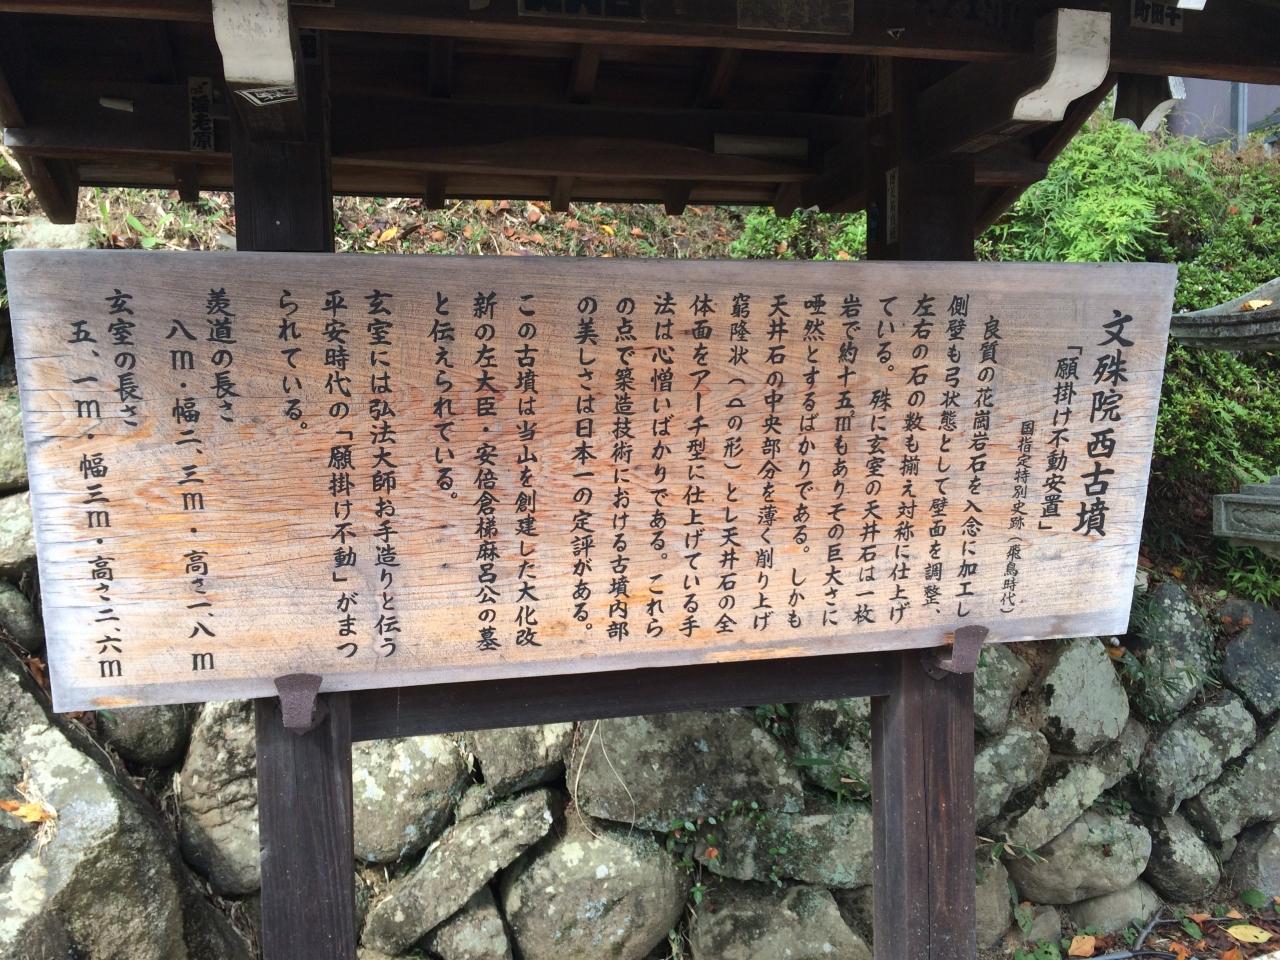 文殊院西古墳
「願掛け不動安置」
国指定特別史跡(飛鳥時代)
良質の花崗岩石を入念に加工し
側壁も弓状態として壁面を調整、
左右の石の数も揃え対称に仕上げ
ている。殊に玄室の天井石は一枚
岩で約十五㎡もありその巨大さに
唖然とするばかりである。しかも
天井石の中央部分を薄く削り上げ
窮隆状(⌓の形)とし天井石の全
体面をアーチ型に仕上げている手
法は心憎いばかりである。これら
の点で築造技術における古墳内部
の美しさは日本一の定評がある。
この古墳は当山を創建した大化改
新の左大臣・安倍倉梯麻呂公の墓
と伝えられている。
玄室には弘法大師お手造りと伝う
平安時代の「願掛け不動」がまつ
られている。
羨道の長さ
八m・幅二、三m・高さ一、八m
玄室の長さ
五、一m・幅三m・高さ二、六m
海老原
千田町